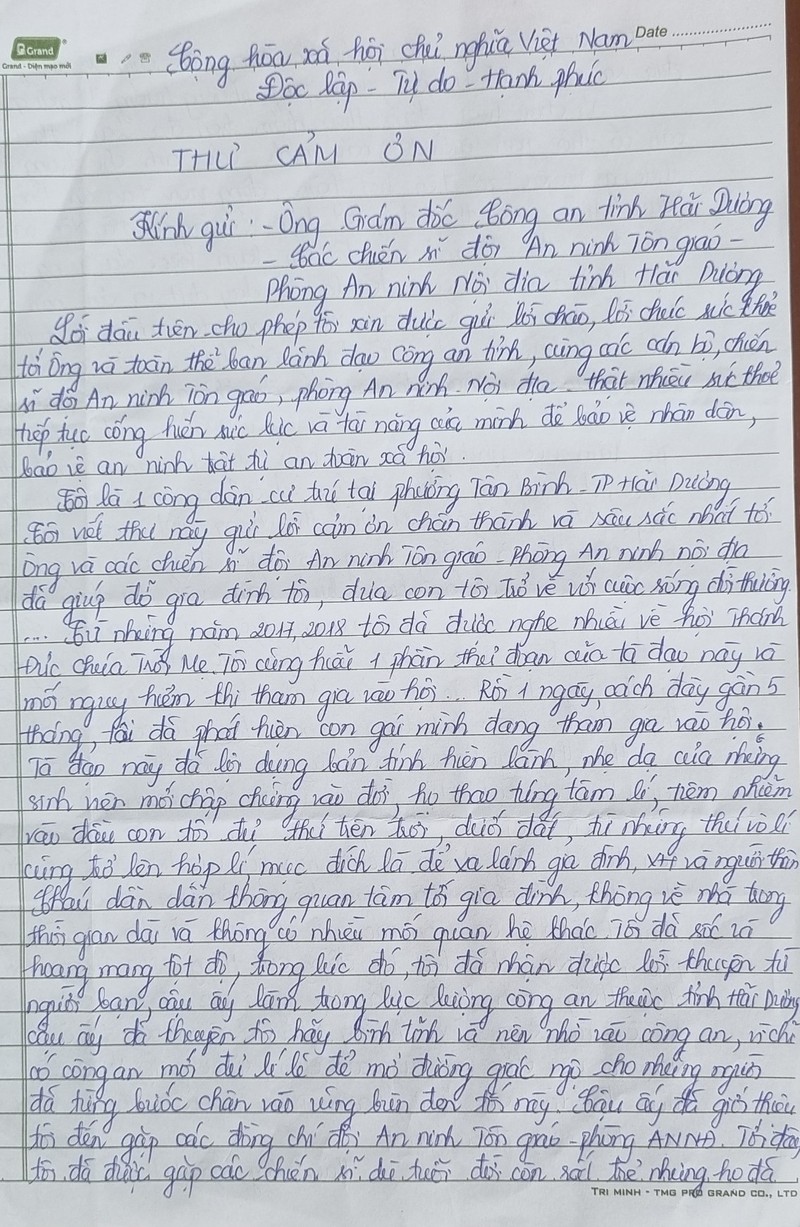 Grand
Grand - Diện mạo mới
Date
Cộng hòa xã hội chủ nghĩa Việt Nam
Độc lập - Tự do - Hạnh phúc
THƯ CẢM ƠN
Kính gửi: - Ông Giám đốc Công an tỉnh Hải Dương
- Các chiến sĩ đội An ninh Tôn giáo -
Phòng An ninh Nội địa tỉnh Hải Dương
Lời đầu tiên cho phép tôi xin được gửi lời chào, lời chúc sức khỏe
tới Ông và toàn thể ban lãnh đạo công an tỉnh, cùng các cán bộ, chiến
sĩ đội An ninh Tôn gaó, phòng An ninh Nội địa thật nhiều sức khoẻ
tiếp tục cống hiến sức lực và tài năng của mình để bảo vệ nhân dân,
bảo vệ an ninh trật tự an toàn xã hội.
Tôi là 1 công dân cư trú tại phường Tân Bình - TP Hải Dương
Tôi viết thư này gửi lời cảm ơn chân thành và sâu sắc nhất tới
Ông và các chiến sĩ đội An ninh Tôn giáo - Phòng An ninh nội địa
đã giúp đỡ gia đình tôi, đưa con tôi trở về với cuộc sống đời thường.
... Từ những năm 2017, 2018 tôi đã được nghe nhiều về hội Thánh
Đức chúa Trời Mẹ. Tôi cũng hiểu 1 phần thủ đoạn của tà đạo này và
mối nguy hiểm khi tham gia vào hội... Rồi 1 ngày, cách đây gần 5
tháng, tôi đã phát hiện con gái mình đang tham gia vào hội.
Tà đạo này đã lợi dụng bản tính hiền lành, nhẹ dạ của những
sinh viên mới chập chững vào đời, họ thao túng tâm lí, tiêm nhiễm
vào đầu con tôi đủ thứ trên trời, dưới đất, từ những thứ vô lí
cũng trở lên hợp lí, mục đích là để xa lánh gia đình, và người thân
Cháu dần dần không quan tâm tới gia đình, không về nhà trong
thời gian dài và không có nhiều mối quan hệ khác. Tôi đã sốc và
hoang mang tột độ, trong lúc đó, tôi đã nhận được lời khuyên từ
người bạn, cậu ấy làm trong lực lượng công an thuộc tỉnh Hải Dương
cậu ấy đã khuyên tôi hãy bình tĩnh và nên nhờ vào công an, vì chỉ
có công an mới đủ lí lẽ để mở đường giác ngộ cho những người
đã từng bước chân vào vũng bùn đen tối này. Cậu ấy đã giới thiệu
tôi đến gặp các đồng chí đội An ninh Tôn giáo - phòng ANNĐ. Tới đây
tôi đã được gặp các chiến sĩ dù tuổi đời còn rất trẻ nhưng họ đã
TRI MINH - TMG PRO GRAND CO., LTD